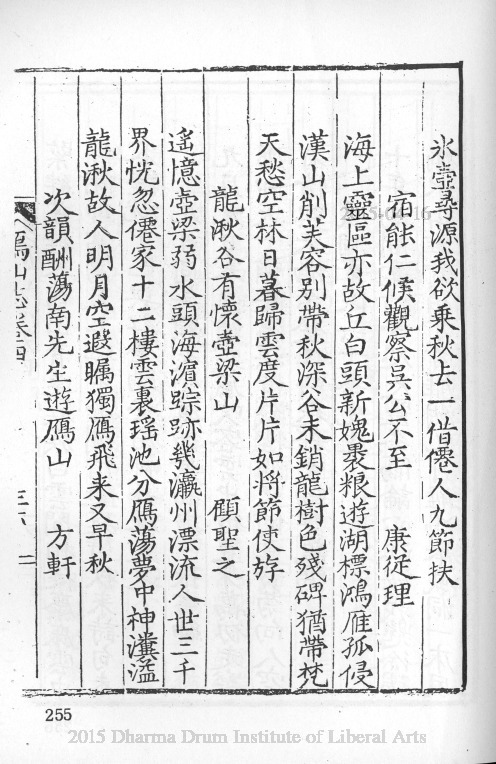 氷壺尋源我欲乗秋去一借僊人九節扶
宿能仁候觀察吳公不至　康從理
海上靈區亦故丘白頭新媿褁粮遊湖標鴻雁孤侵
漢山削芙容別帶秋深谷未銷龍樹色殘碑猶帶梵
天愁空林日暮歸雲度片片如將節使斿
龍湫谷有懷壺梁山　顧聖之
遥憶壺梁弱水頭海濵踪跡幾瀛州漂流人世三千
界恍忽僊家十二樓雲裏瑶池分鴈蕩夢中神瀵溢
龍湫故人明月空遐矚獨鴈飛来又早秋
次韻酬蕩南先生遊鴈山　方軒
鴈山志卷四
255
2015 Dharma Drum Institute of Liberal Arts